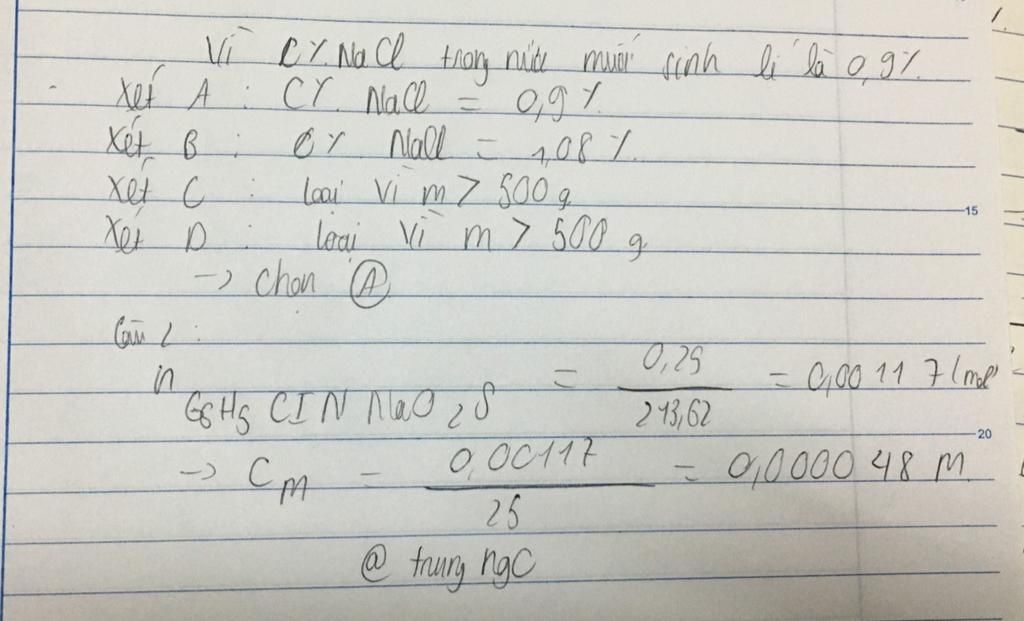 Vì C% NaCl trong nước muối sinh lí là 0,9%
Xét A : C% NaCl = 0,9%
Xét B : C% NaCl = 1,08%
Xét C : loại vì m > 500 g
Xét D : loại vì m > 500 g
→ chọn A
Câu 2 :
n C6H5ClNNaO2S = 0,25 / 213,62 = 0,00117 (mol)
→ CM = 0,00117 / 25 = 0,000048 M
@ trung ngC
15
20